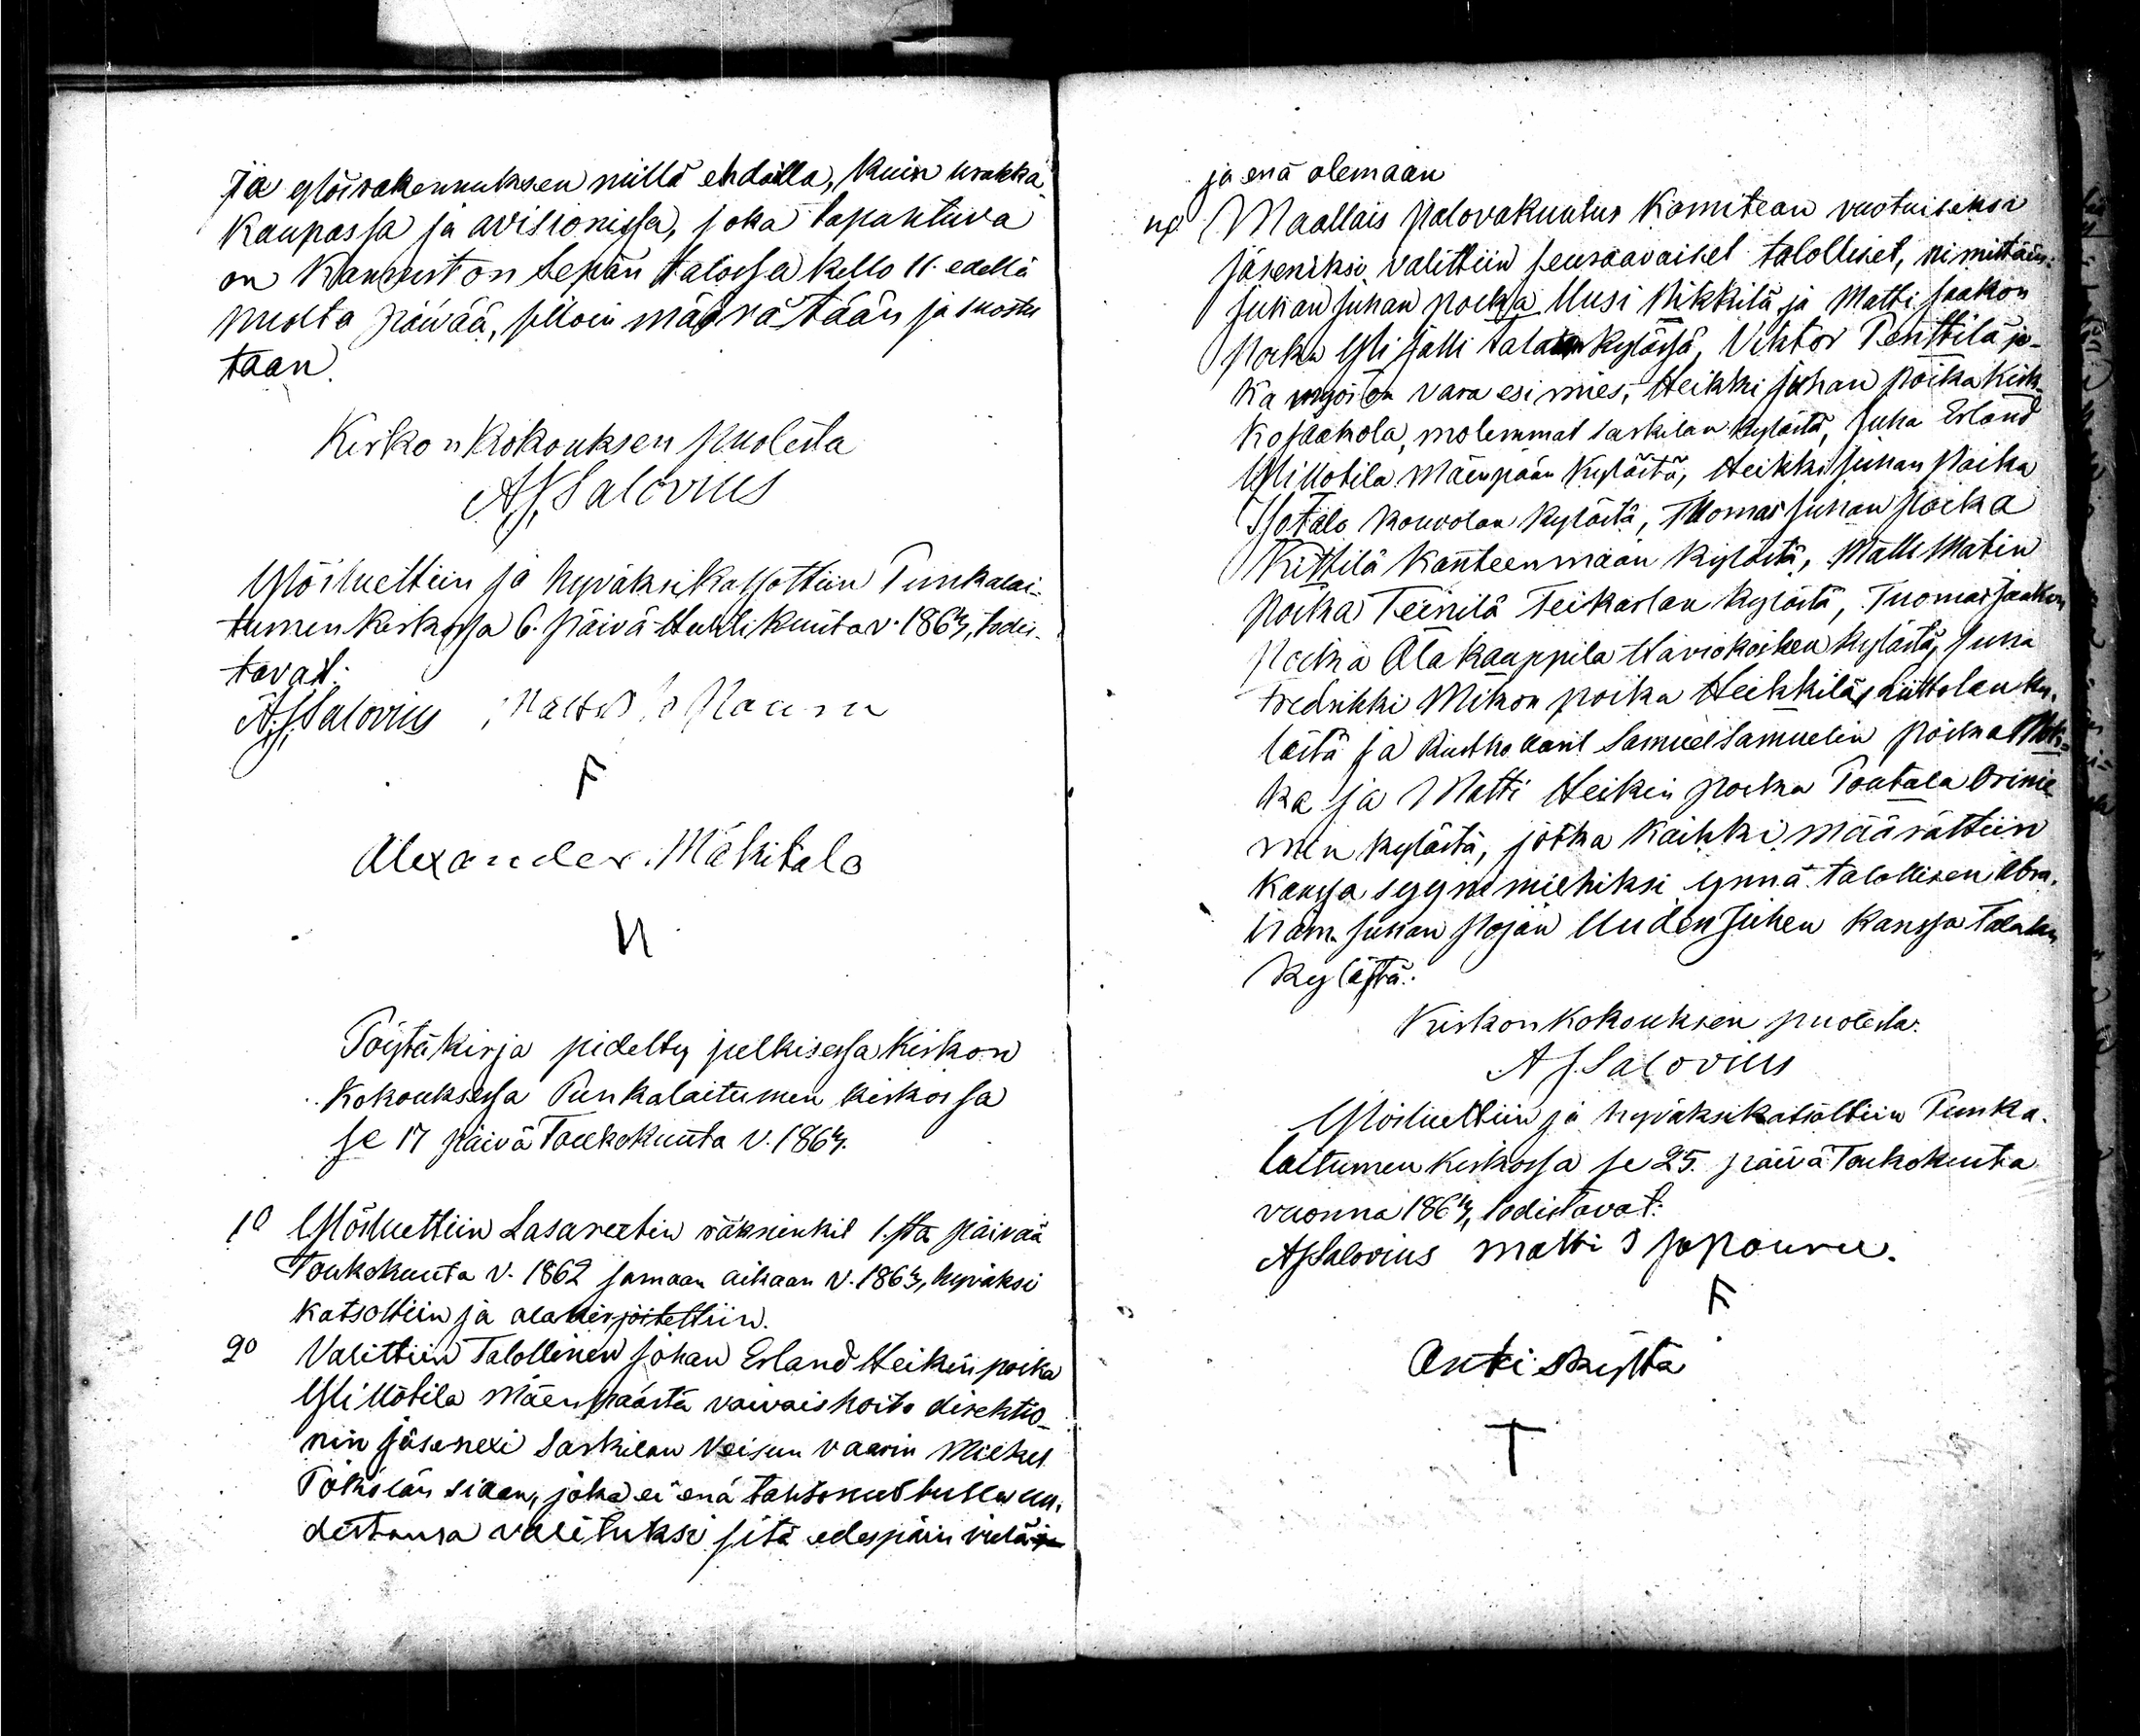 Jä ylösrakennuksen millä ehdolla, kuin urakka-
kaupassa ja avisionissa, joka tapahtuva
on Kanniston Sepän talossa kello 11. edellä
puolta päivää, silloin määrätään ja suostu
taan.
Kirkon kokouksen puolesta
AJSalovius
Ylösluettiin ja hyväksikatsottiin Punkalai-
tumen kirkossa 6. päivä Huhtikuuta v. 1863, todis-
tavat:
AJSalovius Matts
F
Alexander Mäkitalo
N
Pöytäkirja pidetty julkisessa Kirkon
kokouksessa Punkalaitumen kirkossa
se 17 päivä Toukokuuta v. 1863.
1o Ylösluettiin Lasaretin räkninkit 1.stä päivää
Toukokuuta v. 1862 samaan aikaan v. 1863, hyväksi
katsottiin ja alakirjoitettiin.
2o Valittiin Talollinen Johan Erland Heikin poika
Yli Uotila Mäenpäästä vaivaishoito direktio-
nin jäsenexi Sarkilan Veisun vaarin Mickel
Pökölän siaan, joka ei enä tahtonut tulla uu-
destansa valituksi sitä edespäin vielä
ja enä olemaan
3o Maallais palovakuutus Komitean vuotuiseksi
jäseniksi valittiin seuraavaiset talolliset, nimittäin:
Juhan Juhan poika Uusi Nikkilä ja Matti Jaakon
poika Yli Jalli Talalan kylässä, Viktor Penttilä jo-
ka myös on vara esimies, Heikki Juhan poika Kirk-
ko Jaakola, molemmat Sarkilan kylästä, Juha Erland
Yli Uotila Mäenpään kylästä, Heikki Juhan poika
Isotalo Kouvolan kylästä, Thomas Juhan poika
Kittilä Kanteenmaan kylästä, Matti Matin
poika Teinilä Teikarlan kylästä, Tuomas Jaakon
poika Ala Kauppila Haviokosken kylästä, Juha
Fredrikki Mikon poika Heikkilä, Liittolan ky-
lästä ja Rusthollarit Samuel Samuelin poika
ka ja Matti Heikin poika Poutala Orinie
men kylästä, jotka kaikki määrättiin
kanssa syynimiehiksi ynnä talollisen Abra-
ham Juhan pojan Uuden Juhen kanssa Talalan
kylästä.
Kirkon kokouksen puolesta:
AJSalovius
Ylösluettiin ja hyväksikatsottiin Punka-
laitumen kirkossa se 25. päivä Toukokuuta
vuonna 1863, todistavat:
AJSalovius matti
F
Anti skyttä
T